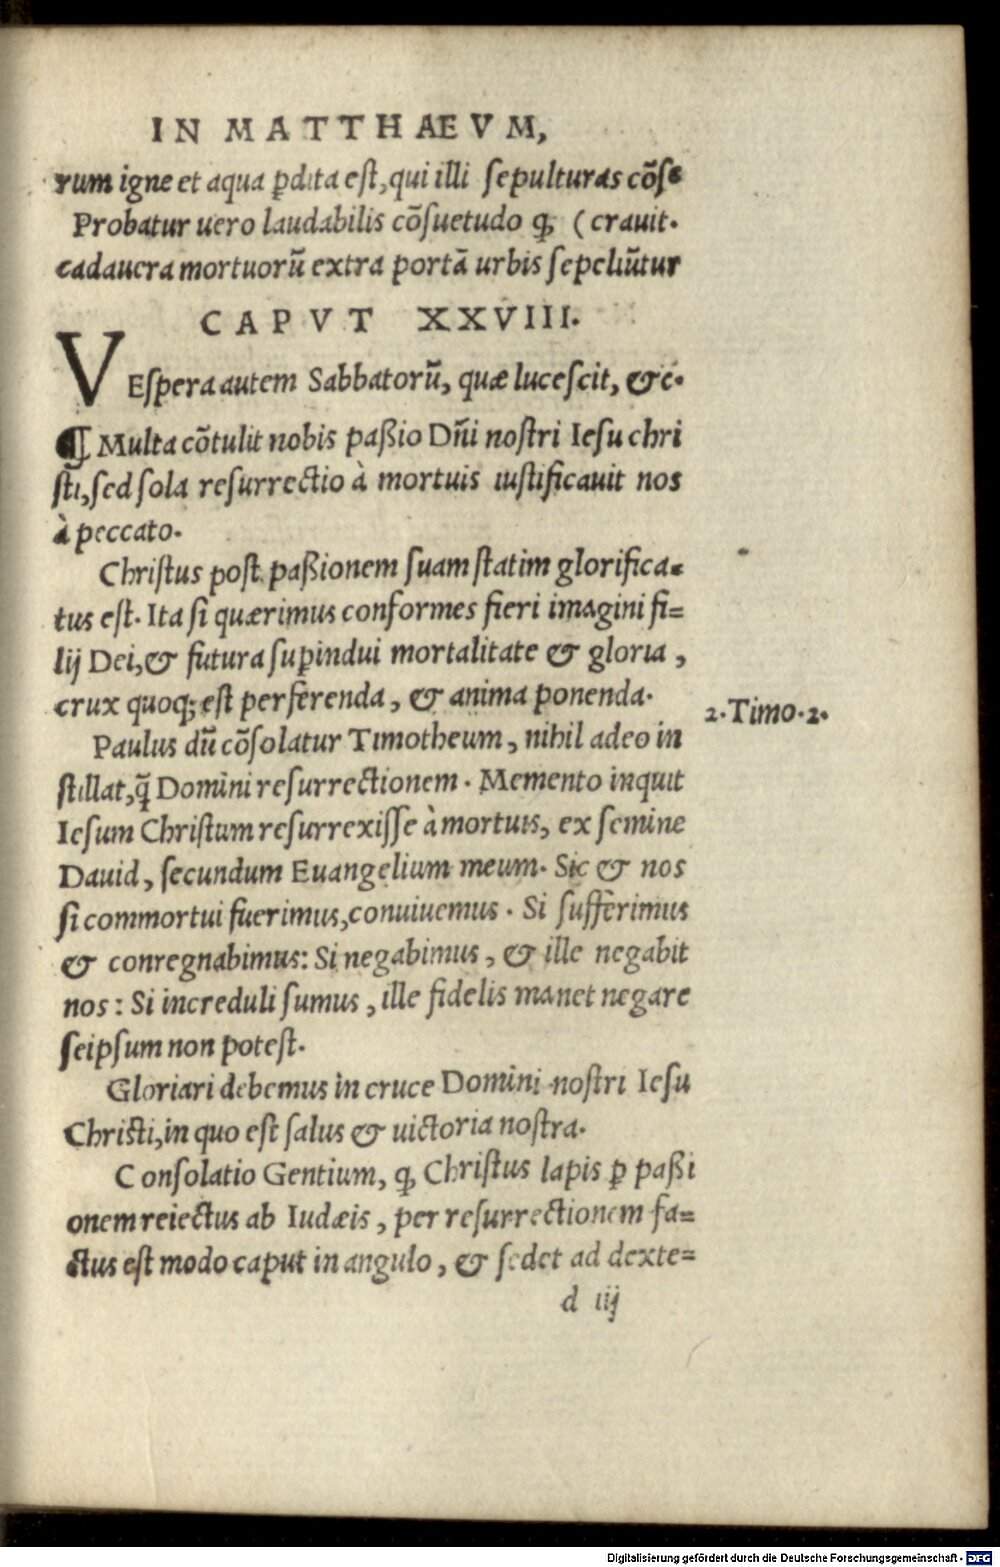 IN MATTHAEVM,
rum igne et aqua p̲dita est, qui illi sepulturas cõse
Probatur uero laudabilis cõsuetudo ꝙ (crauit.
cadauera mortuorũ extra portã urbis sepeliũtur
CAPVT XXVIII.
VEspera autem Sabbatorũ, quæ lucescit, &c.
¶ Multa cõtulit nobis paßio Dñi nostri Iesu chri
sti, sed sola resurrectio à mortuis iustificauit nos
à peccato.
Christus post paßionem suam statim glorifica-
tus est. Ita si quærimus conformes fieri imagini fi=
lij Dei, & futura sup̲indui mortalitate & gloria,
crux quoq; est perferenda, & anima ponenda.
Paulus dũ cõsolatur Timotheum, nihil adeo in
stillat, q̃ Domini resurrectionem. Memento inquit
Iesum Christum resurrexisse à mortuis, ex semine
Dauid, secundum Euangelium meum. Sic & nos
si commortui fuerimus, conuiuemus. Si sufferimus
& conregnabimus: Si negabimus, & ille negabit
nos: Si increduli sumus, ille fidelis manet negare
seipsum non potest.
2.Timo.2.
Gloriari debemus in cruce Domini nostri Iesu
Christi, in quo est salus & uictoria nostra.
Consolatio Gentium, ꝙ Christus lapis p̲ paßi
onem reiectus ab Iudæis, per resurrectionem fa=
ctus est modo caput in angulo, & sedet ad dexte=
d iij
Digitalisierung gefördert durch die Deutsche Forschungsgemeinschaft - DFG